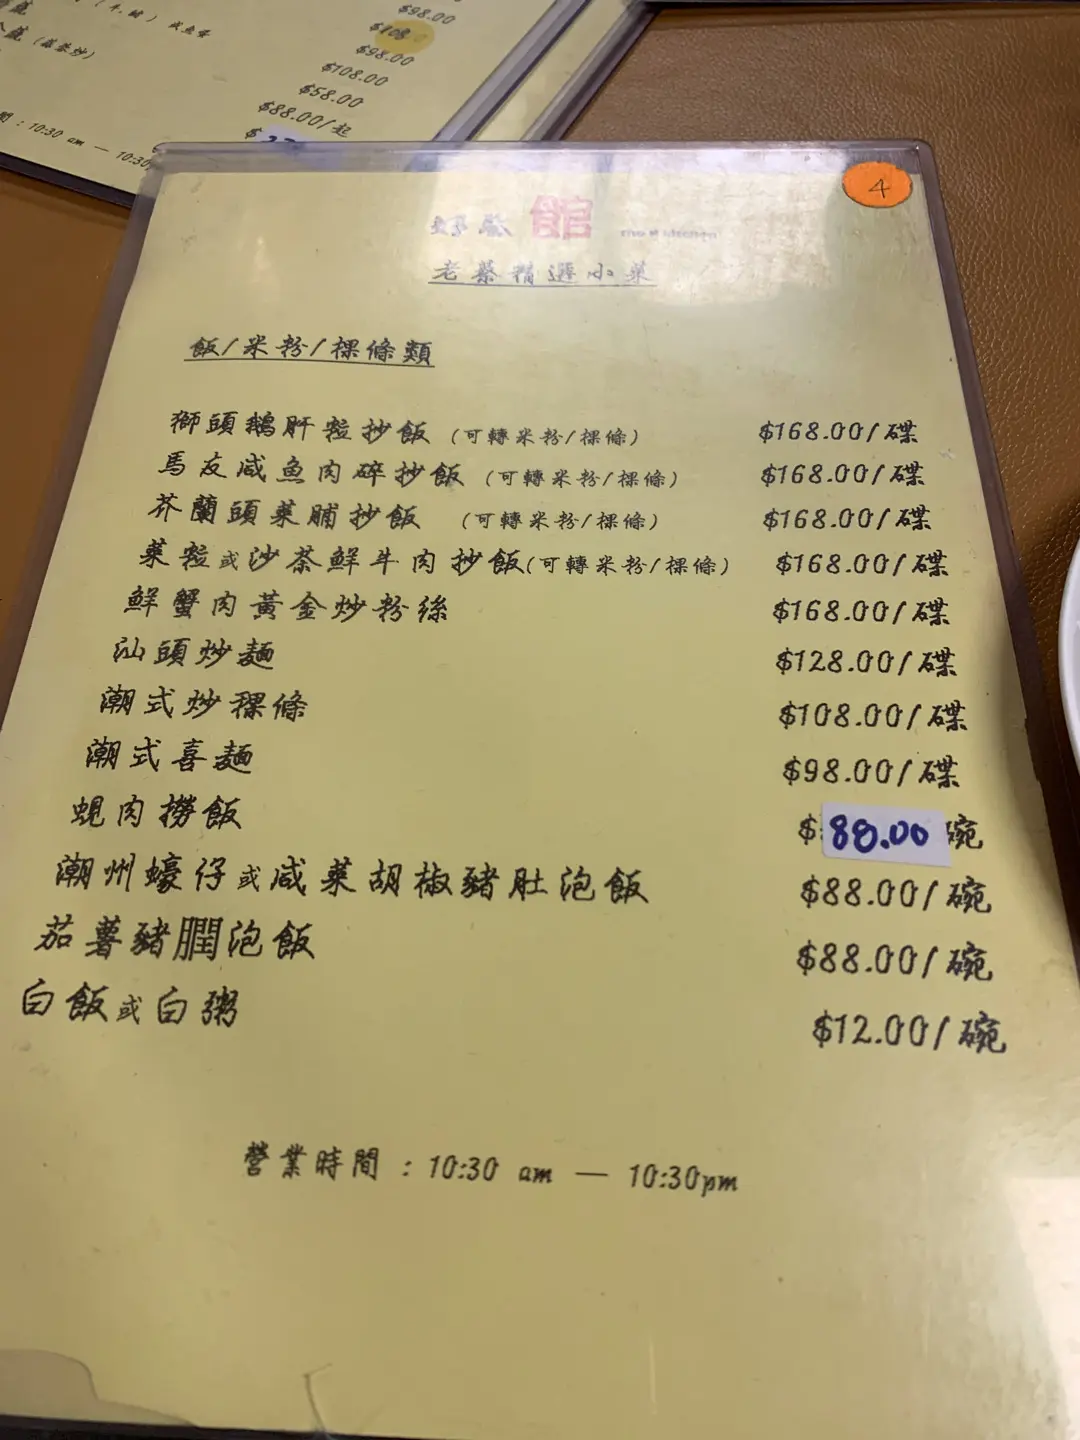 $98.00
$108.0
$98.00
$108.00
$58.00
$88.00/起
$
: 10:30 am — 10:30p
4
館
老蔡精選小菜
飯/米粉/粿條類
獅頭鵝肝粒抄飯 (可轉米粉/粿條) $168.00/碟
馬友咸魚肉碎抄飯 (可轉米粉/粿條) $168.00/碟
芥蘭頭菜脯抄飯 (可轉米粉/粿條) $168.00/碟
菜粒或沙茶鮮牛肉抄飯(可轉米粉/粿條) $168.00/碟
鮮蟹肉黃金炒粉絲 $168.00/碟
汕頭炒麵 $128.00/碟
潮式炒稞條 $108.00/碟
潮式喜麵 $98.00/碟
蜆肉撈飯 $88.00 碗
潮州蠔仔或咸菜胡椒豬肚泡飯 $88.00/碗
茄薯豬膶泡飯 $88.00/碗
白飯或白粥 $12.00/碗
營業時間 : 10:30 am — 10:30pm